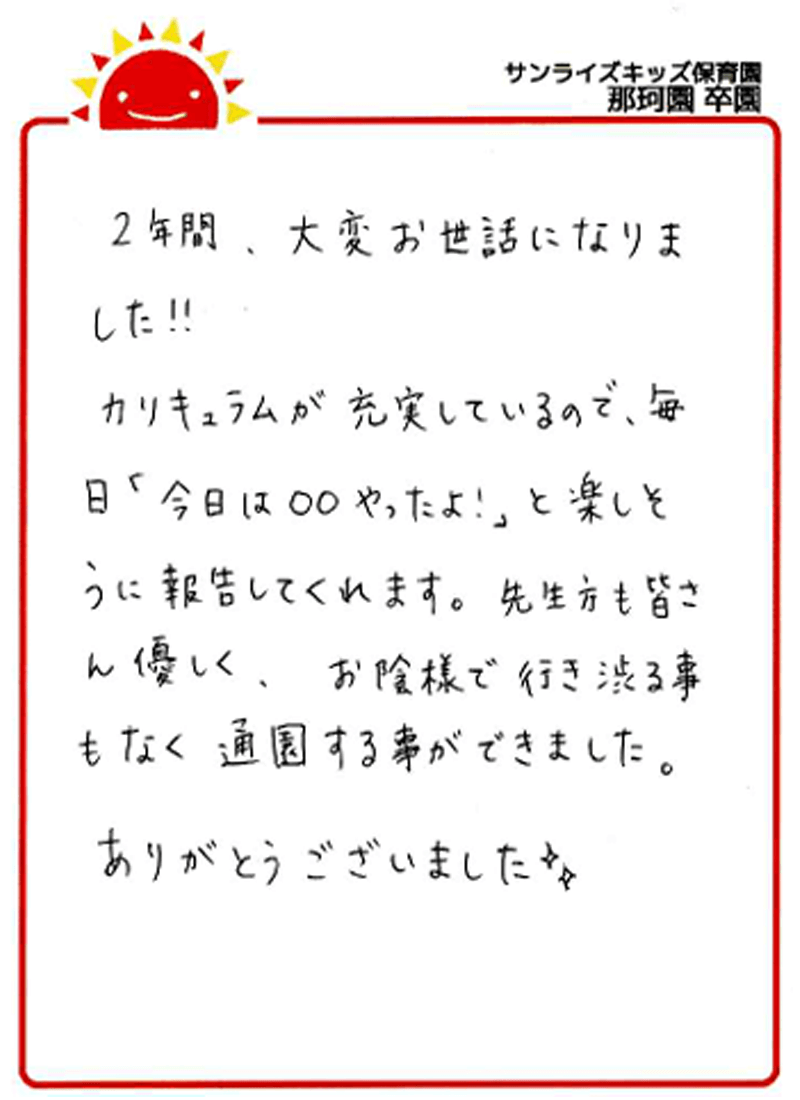 サンライズキッズ保育園
那珂園 卒園
2年間、大変お世話になりま
した!!
カリキュラムが充実しているので、毎
日「今日は〇〇やったよ!」と楽しそ
うに報告してくれます。先生方も皆さ
ん優しく、お陰様で行き渋る事
もなく通園する事ができました。
ありがとうございました✨